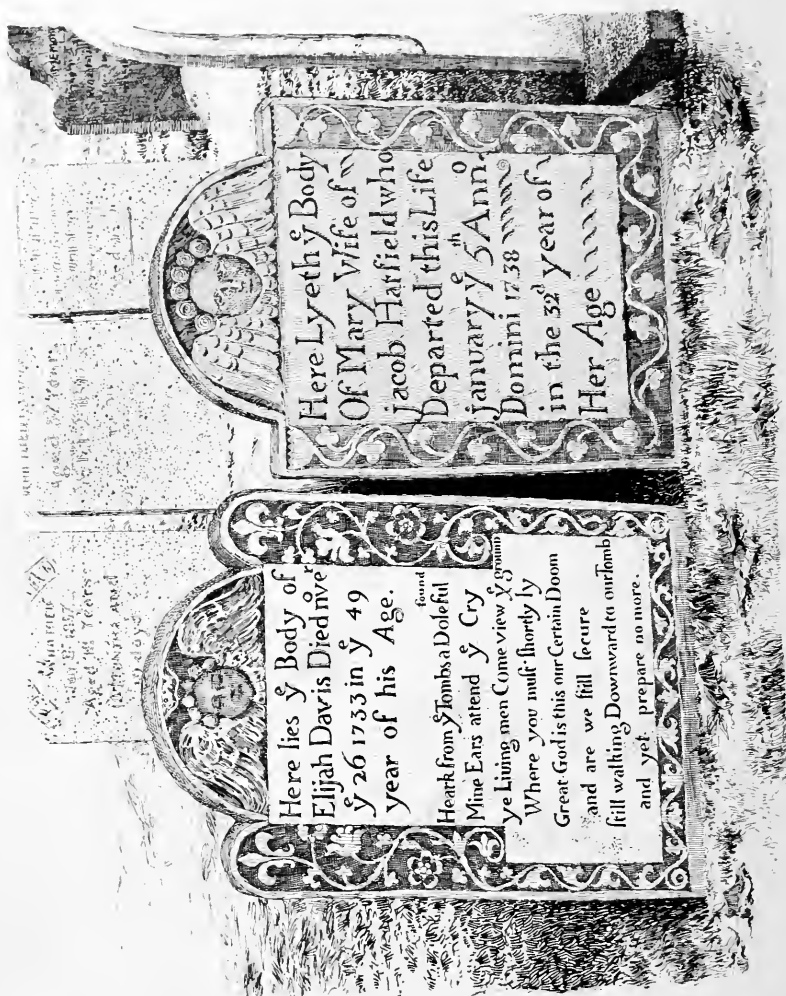 Aged
Years
Here lies yͤ Body of
Elijah Davis Died nveʳ
yͤ 26 1733 in yͤ 49
year of his Age.
Heark from yͤ Tombs a Doleful ſound
Mine Ears attend yͤ Cry
ye Living men Come view yͤ ground
Where you muſt ſhortly ly
Great God is this our Certain Doom
and are we ſtill ſecure
ſtill walking Downward to our Tomb
and yet prepare no more.
Here Lyeth yͤ Body
Of Mary Wife of
jacob Hatfield who
Departed this Life
january yͤ 5ᵗʰ Annᵒ
Domini 1738
in the 32ᵈ year of
Her Age